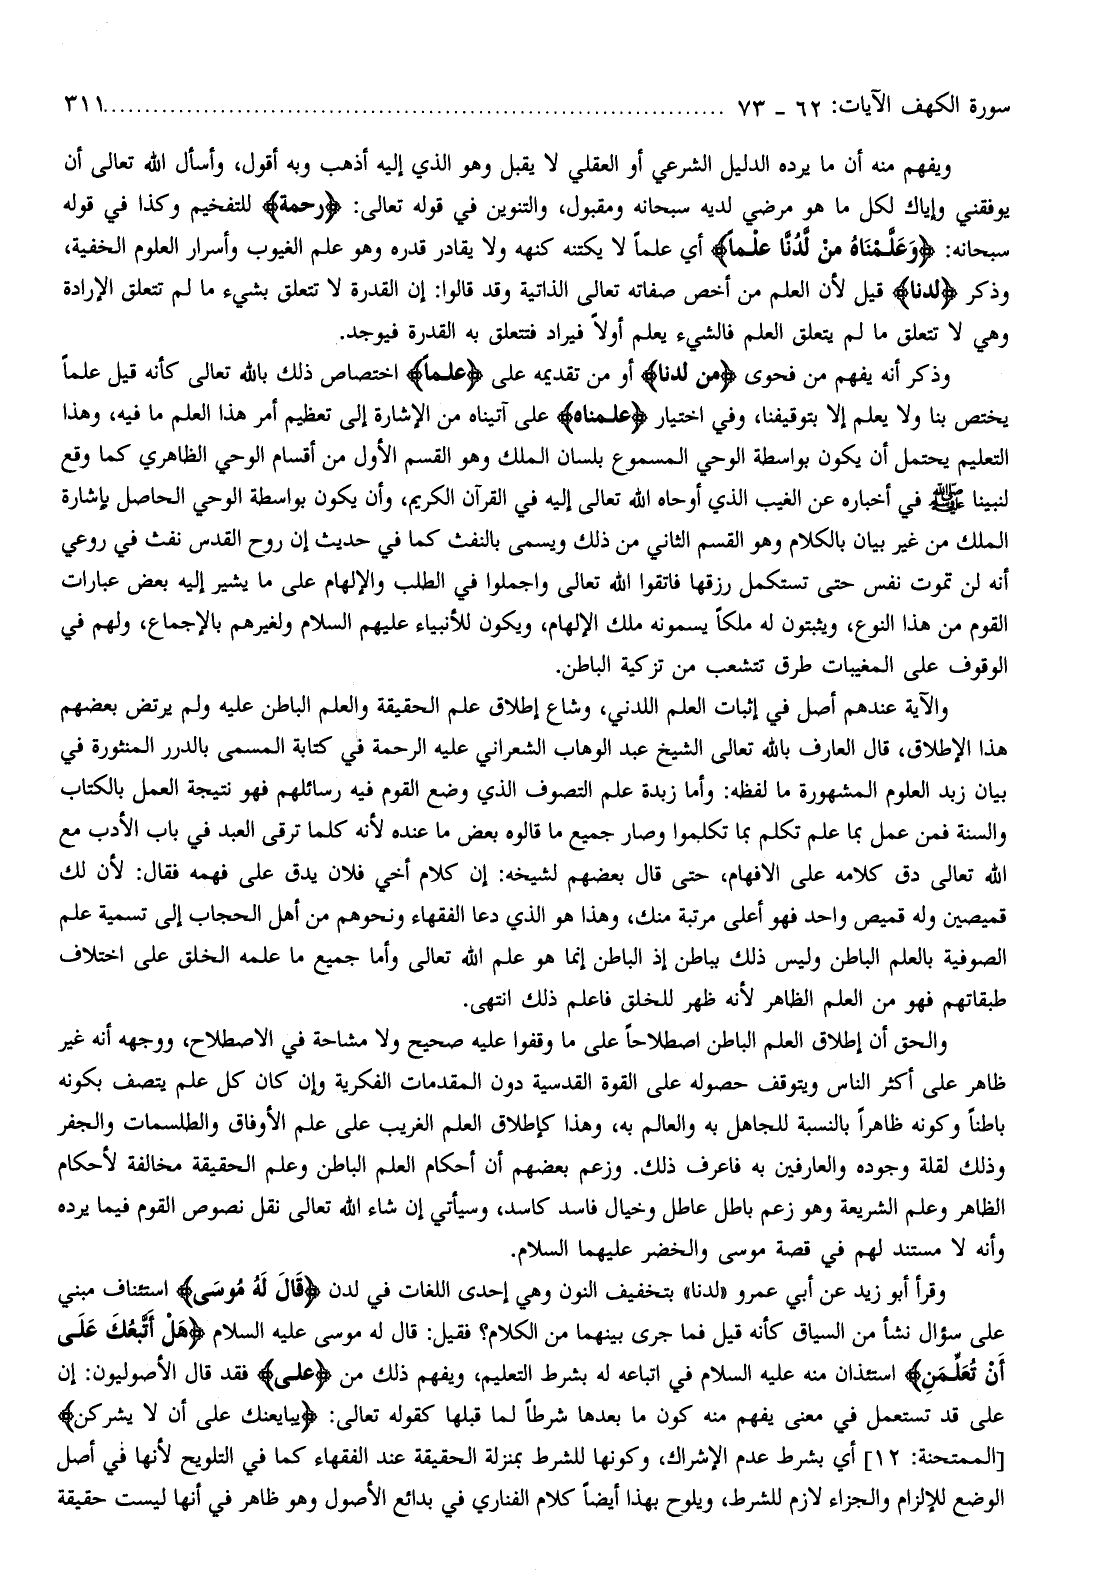 سورة الكهف الآيات: ٦٢ - ٧٣ ........................................................................... ٣١١
ويفهم منه أن ما يرده الدليل الشرعي أو العقلي لا يقبل وهو الذي إليه أذهب وبه أقول، وأسأل الله تعالى أن
يوفقني وإياك لكل ما هو مرضي لديه سبحانه ومقبول، والتنوين في قوله تعالى: ﴿رحمة﴾ للتفخيم وكذا في قوله
سبحانه: ﴿وَعَلَّمْنَاهُ منْ لَّدُنَّا علْماً﴾ أي علماً لا يكتنه كنهه ولا يقادر قدره وهو علم الغيوب وأسرار العلوم الخفية،
وذكر ﴿لدنا﴾ قيل لأن العلم من أخص صفاته تعالى الذاتية وقد قالوا: إن القدرة لا تتعلق بشيء ما لم تتعلق الإرادة
وهي لا تتعلق ما لم يتعلق العلم فالشيء يعلم أولاً فيراد فتتعلق به القدرة فيوجد.
وذكر أنه يفهم من فحوى ﴿من لدنا﴾ أو من تقديمه على ﴿علماً﴾ اختصاص ذلك بالله تعالى كأنه قيل علماً
يختص بنا ولا يعلم إلا بتوقيفنا، وفي اختيار ﴿علمناه﴾ على آتيناه من الإشارة إلى تعظيم أمر هذا العلم ما فيه، وهذا
التعليم يحتمل أن يكون بواسطة الوحي المسموع بلسان الملك وهو القسم الأول من أقسام الوحي الظاهري كما وقع
لنبينا ﷺ في أخباره عن الغيب الذي أوحاه الله تعالى إليه في القرآن الكريم، وأن يكون بواسطة الوحي الحاصل بإشارة
الملك من غير بيان بالكلام وهو القسم الثاني من ذلك ويسمى بالنفث كما في حديث إن روح القدس نفث في روعي
أنه لن تموت نفس حتى تستكمل رزقها فاتقوا الله تعالى واجملوا في الطلب والإلهام على ما يشير إليه بعض عبارات
القوم من هذا النوع، ويثبتون له ملكاً يسمونه ملك الإلهام، ويكون للأنبياء عليهم السلام ولغيرهم بالإجماع، ولهم في
الوقوف على المغيبات طرق تتشعب من تزكية الباطن.
والآية عندهم أصل في إثبات العلم اللدني، وشاع إطلاق علم الحقيقة والعلم الباطن عليه ولم يرتض بعضهم
هذا الإطلاق، قال العارف بالله تعالى الشيخ عبد الوهاب الشعراني عليه الرحمة في كتابة المسمى بالدرر المنثورة في
بيان زبد العلوم المشهورة ما لفظه: وأما زبدة علم التصوف الذي وضع القوم فيه رسائلهم فهو نتيجة العمل بالكتاب
والسنة فمن عمل بما علم تكلم بما تكلموا وصار جميع ما قالوه بعض ما عنده لأنه كلما ترقى العبد في باب الأدب مع
الله تعالى دق كلامه على الافهام، حتى قال بعضهم لشيخه: إن كلام أخي فلان يدق على فهمه فقال: لأن لك
قميصين وله قميص واحد فهو أعلى مرتبة منك، وهذا هو الذي دعا الفقهاء ونحوهم من أهل الحجاب إلى تسمية علم
الصوفية بالعلم الباطن وليس ذلك بباطن إذ الباطن إنما هو علم الله تعالى وأما جميع ما علمه الخلق على اختلاف
طبقاتهم فهو من العلم الظاهر لأنه ظهر للخلق فاعلم ذلك انتهى.
والحق أن إطلاق العلم الباطن اصطلاحاً على ما وقفوا عليه صحيح ولا مشاحة في الاصطلاح، ووجهه أنه غير
ظاهر على أكثر الناس ويتوقف حصوله على القوة القدسية دون المقدمات الفكرية وإن كان كل علم يتصف بكونه
باطناً وكونه ظاهراً بالنسبة للجاهل به والعالم به، وهذا كإطلاق العلم الغريب على علم الأوفاق والطلسمات والجفر
وذلك لقلة وجوده والعارفين به فاعرف ذلك. وزعم بعضهم أن أحكام العلم الباطن وعلم الحقيقة مخالفة لأحكام
الظاهر وعلم الشريعة وهو زعم باطل عاطل وخيال فاسد كاسد، وسيأتي إن شاء الله تعالى نقل نصوص القوم فيما يرده
وأنه لا مستند لهم في قصة موسى والخضر عليهما السلام.
وقرأ أبو زيد عن أبي عمرو «لدنا» بتخفيف النون وهي إحدى اللغات في لدن ﴿قَالَ لَهُ مُوسَى﴾ استئناف مبني
على سؤال نشأ من السياق كأنه قيل فما جرى بينهما من الكلام؟ فقيل: قال له موسى عليه السلام ﴿هَلْ أَتَّبعُكَ عَلَى
أَنْ تُعَلِّمَنِ﴾ استئذان منه عليه السلام في اتباعه له بشرط التعليم، ويفهم ذلك من ﴿على﴾ فقد قال الأصوليون: إن
على قد تستعمل في معنى يفهم منه كون ما بعدها شرطاً لما قبلها كقوله تعالى: ﴿يبايعنك على أن لا يشركن﴾
[الممتحنة: ١٢] أي بشرط عدم الإشراك، وكونها للشرط بمنزلة الحقيقة عند الفقهاء كما في التلويح لأنها في أصل
الوضع للإلزام والجزاء لازم للشرط، ويلوح بهذا أيضاً كلام الفناري في بدائع الأصول وهو ظاهر في أنها ليست حقيقة